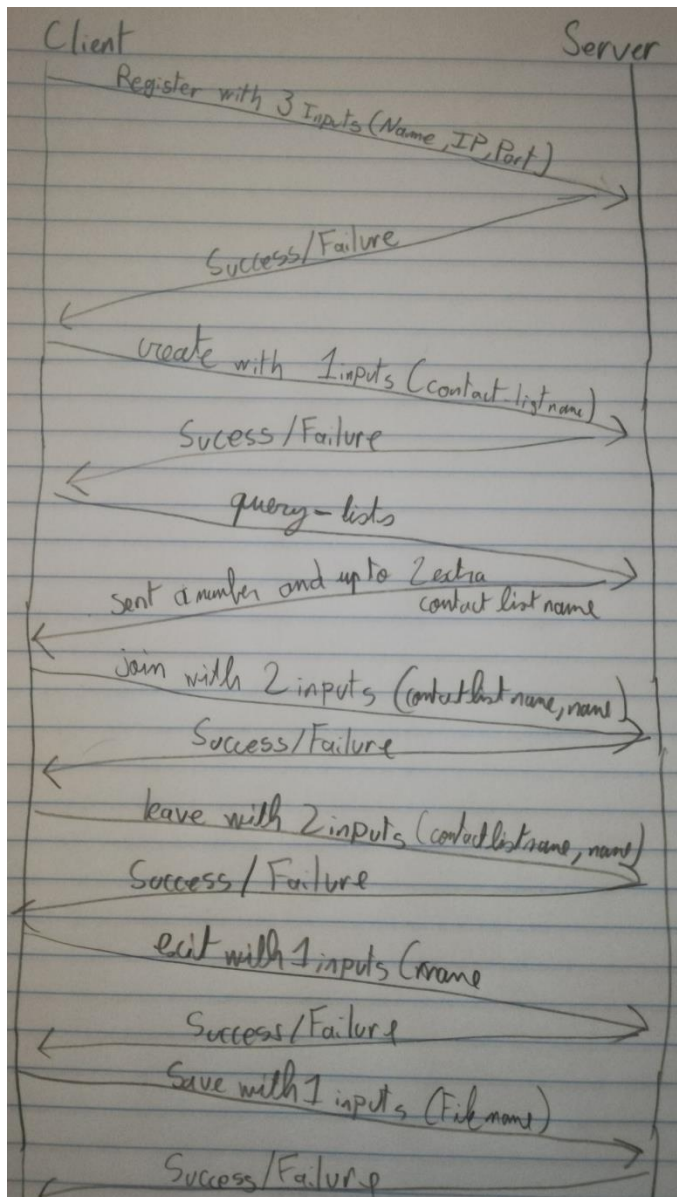 Client
Server
Register with 3 Inputs (Name, IP, Port)
Success/Failure
create with 1 inputs (contact-list name)
Sucess/Failure
query-lists
sent a number and up to 2 extra
contact list name
join with 2 inputs (contact list name, name)
Success/Failure
leave with 2 inputs (contact list name, name)
Success/Failure
exit with 1 inputs (name
Success/Failure
Save with 1 inputs (File name)
Success/Failure